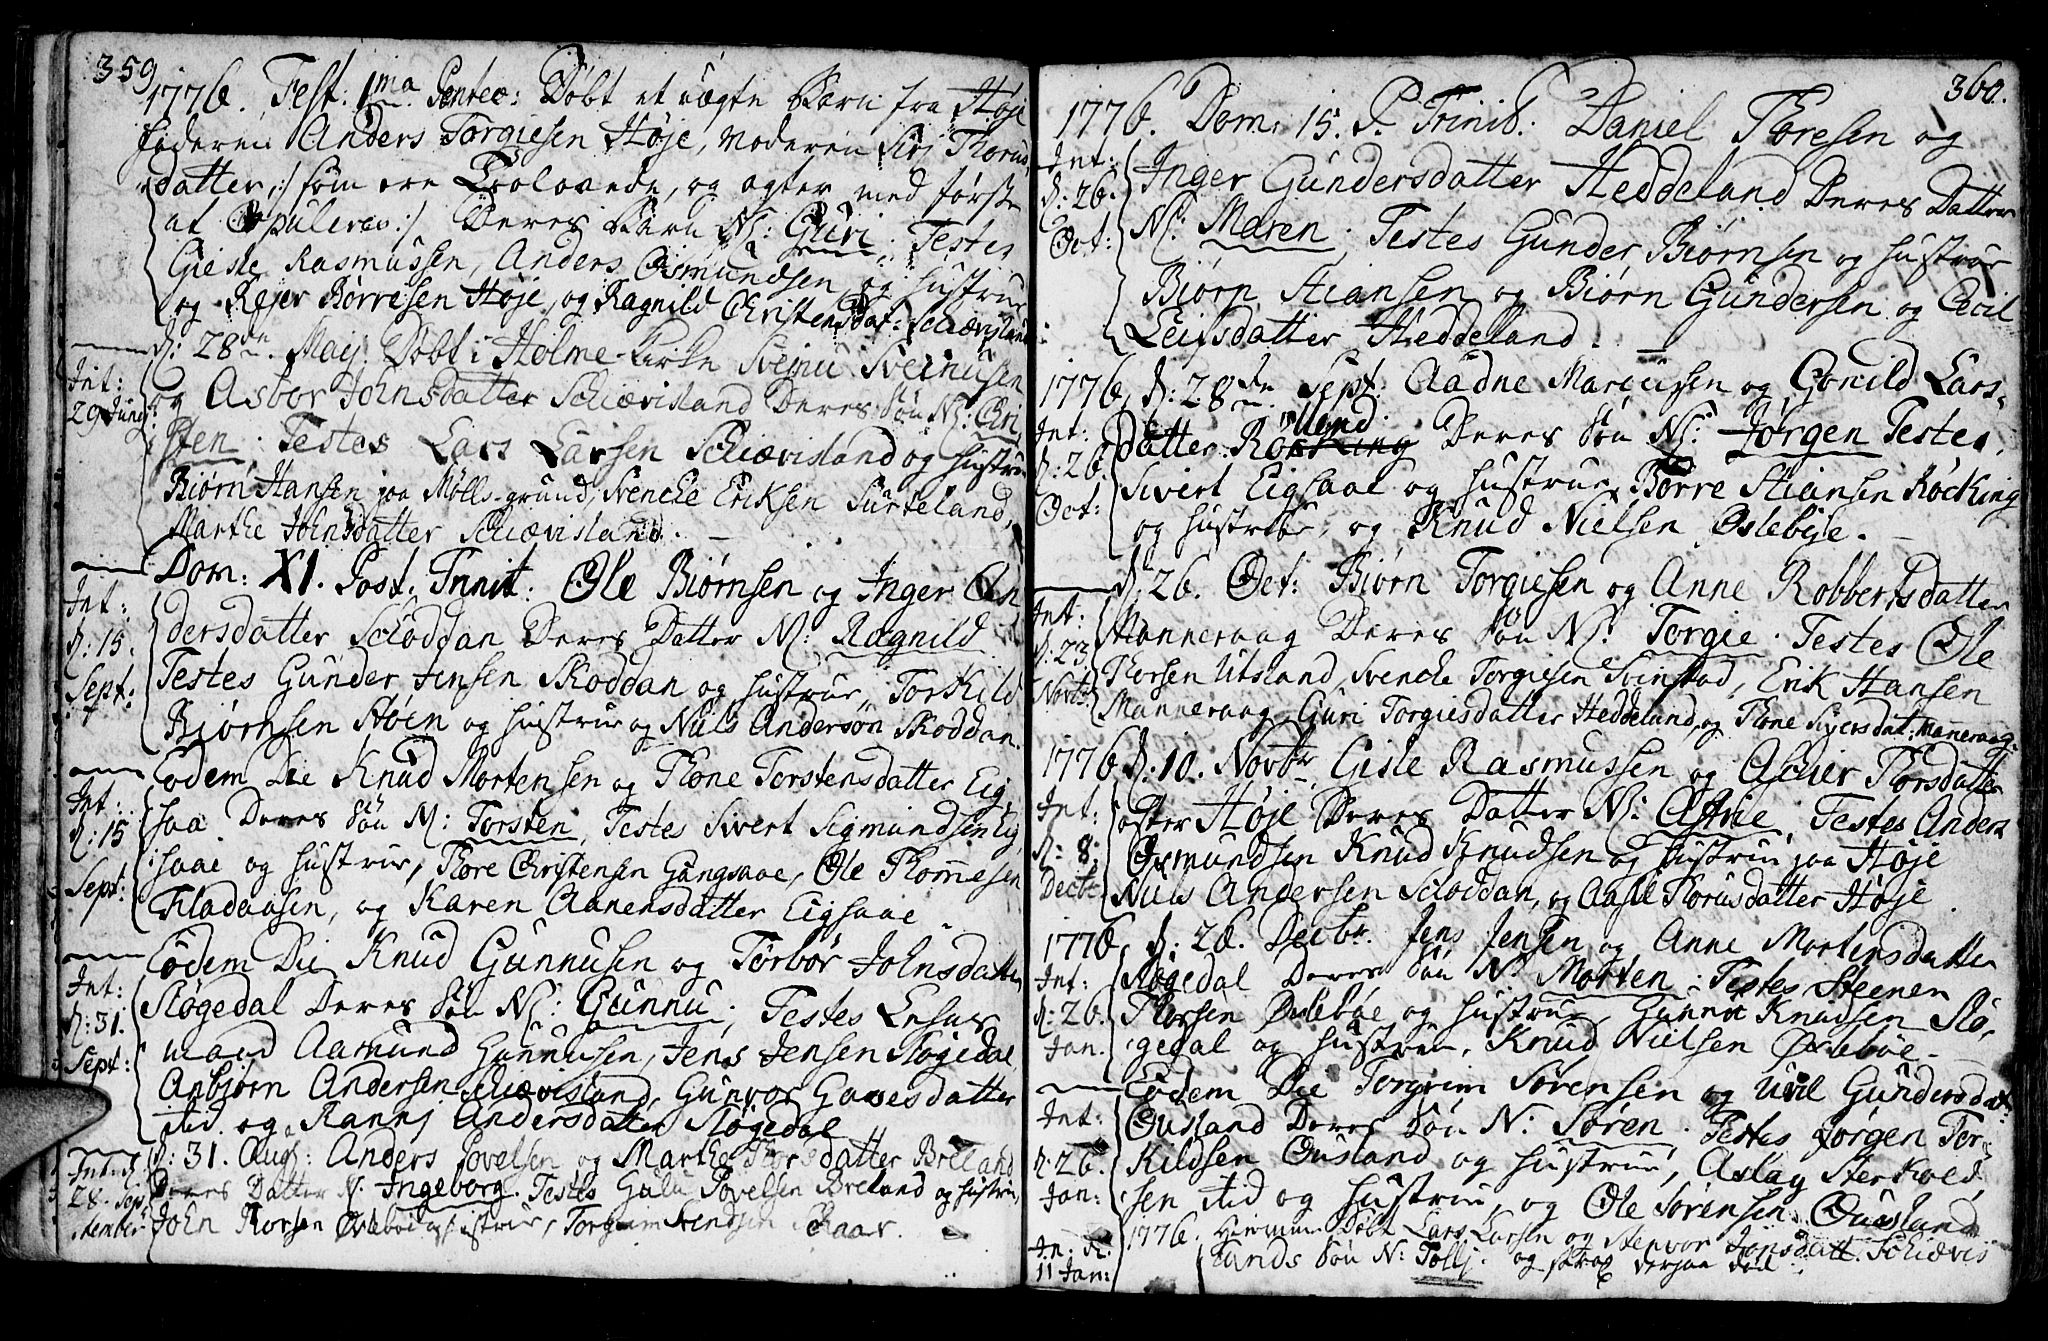 359
1776. Fest: 1ma Pentec: Døbt et uægte Barn fra Høje
faderen Anders Torgiesen Høje, moderen Siri Thorus
datter, /: som ere Trolovede, og agter med første
at Copuleres :/ Deres Barn N: Guri. Testes
Giesle Rasmussen, Anders Osmundsen og hustrue
og Rejer Børresen Høje, og Ragnild Christensdat: Schævisland
d: 28de Maij Døbt i Holme Kirke Svejnu Sveinusen
Int:
29 Junij
og Asbor Johnsdatter Schævisland Deres Søn N: Chri
sten. Testes Lars Larsen Schævisland og hustrue
Biørn Hansen paa Møllegrund, Svencke Eriksen Surteland,
Marthe Johnsdatter Schævisland.
Dom: XI. Post. Trinit: Ole Biørnsen og Inger An
Int:
d: 15.
Sept:
dersdatter Schoddan Deres Datter N: Ragnild
Testes Gunder Jensen Skoddan og hustrue, Torkild
Biørnsen Støen og hustrue og Niils Andersøn Skoddan.
Eodem Die Knud Mortensen og Thone Torstensdatter Eig
Int:
d: 15
Sept:
saa Deres Søn N: Torsten, Testes Sivert Sigmundsen Eig
saae og hustrue, Thore Christensen Gangsaae, Ole Thommesen
Fladaasen, og Karen Aanensdatter Eigsaae
Eodem Die Knud Gunnusen og Torbør Johnsdatter
Int:
d: 31.
Sept:
Støgedal Deres Søn N: Gunnu, Testes Lens
mand Aamund Gunnusen, Jens Jensen Støgedal
Anbjørn Andersen Schævisland, Gunvor Gavesdatter
ibid. og Ranni Andersdatter Støgedal
Int: d.
28. Sep
tember
d: 31. Aug: Anders Povelsen og Marthe Thorsdatter Breland
Deres Datter N: Ingeborg. Testes Gulu Povelsen Breland og hustrue,
John Thorsen Øvlebøe og hustrue, Torgrim Svendsen Skaar.
360.
1776. Dom: 15. P. Trinit. Daniel Thoresen og
Int:
d: 26.
Oct:
Inger Gundersdatter Heddeland Deres Datter
N: Maren. Testes Gunder Biørnsen og hustrue
Biørn Stiansen og Biørn Gundersen og Cecil
Leifsdatter Heddeland.
1776. d: 28de Sept: Aadne Marcussen og Gonild Lars-
Int:
d: 26.
Oct:
datter Rosseland Deres Søn N: Jørgen Testes,
Sivert Eigsaae og hustrue, Børre Stiansen Røcking
og hustrue, og Knud Nielsen Øslebye.
d. 26. Oct: Biørn Torgiesen og Anne Robbertsdatter
Int:
d: 23
Novbr:
Manneraag Deres Søn N: Torgie. Testes Ole
Thorsen Utsland, Svencke Torgiesen Svinstad, Erik Hansen
Manneraag, Guri Torgiesdatter Heddeland, og Thone Siversdat: Manneraag.
1776 d. 10. Novbr Gisle Rasmussen og Achier Thorsdatter
Int:
d: 8.
Decbr
øster Høje Deres Datter N: Astrie, Testes Anders
Osmundsen Knud Knudsen og hustrue paa Høje
Niils Andersen Schoddan, og Aasil Thorusdatter Høje.
1776. d: 26. Decbr. Jens Jensen og Anne Mortensdatter
Int:
d: 26.
Jan.
Støgedal Deres Søn N: Morten. Testes Steener
Thorsen Øvlebøe og hustrue, Gunnu Knudsen Stø,
gedal og hustrue, Knud Nielsen Øvlebøe
Eodem Die Torgrim Sørensen og Uvil Gundersdat:
Int:
d: 26.
Jan:
Ousland Deres Søn N: Søren. Testes Jørgen Tor
kildsen Ousland og hustrue, Aslag Sterkved
sen ibid og hustrue, og Ole Sørensen Ousland
In: d.
11 Jan:
1776. Hiemme Døbt Lars Larsen og Stenvor Jonsdatt: Schævis
lands Søn N: Tollj. og strax derpaa død.